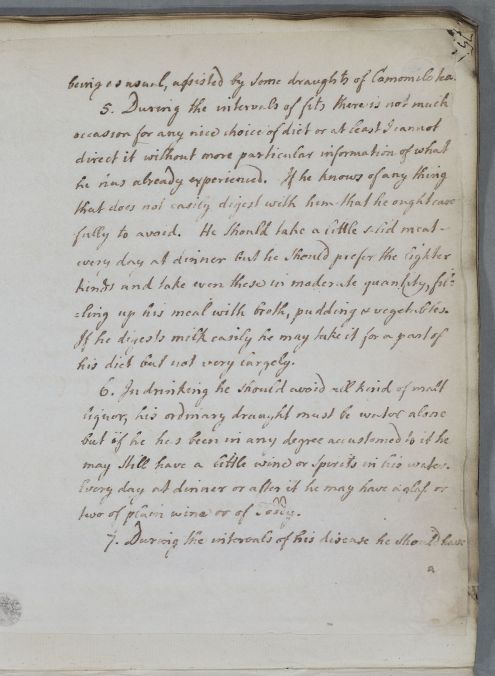 being as usual, assisted by some draughts of Camomile tea.
5. During the intervals of fits there is not much
occasion for any nice choice of diet or at least I cannot
direct it without more particular information of what
he has already experienced. If he knows of any thing
that does not easily digest with him that he ought care
fully to avoid. He should take a little solid meat
every day at dinner but he should prefer the lighter
kinds and take even these in moderate quantity, fil=
=ling up his meal with broth, pudding or vegetables.
If he digests milk easily he may take it for a part of
his diet but not very largely.
6. In drinking he should avoid all kind of malt
liquor, his ordinary draught must be water alone
but if he has been in any degree accustomed to it he
may still have a little wine or spirits in his water.
Every day at dinner or after it he may have a glass or
two of plain wine or of Toddy.
7. During the intervals of his disease he should have
a